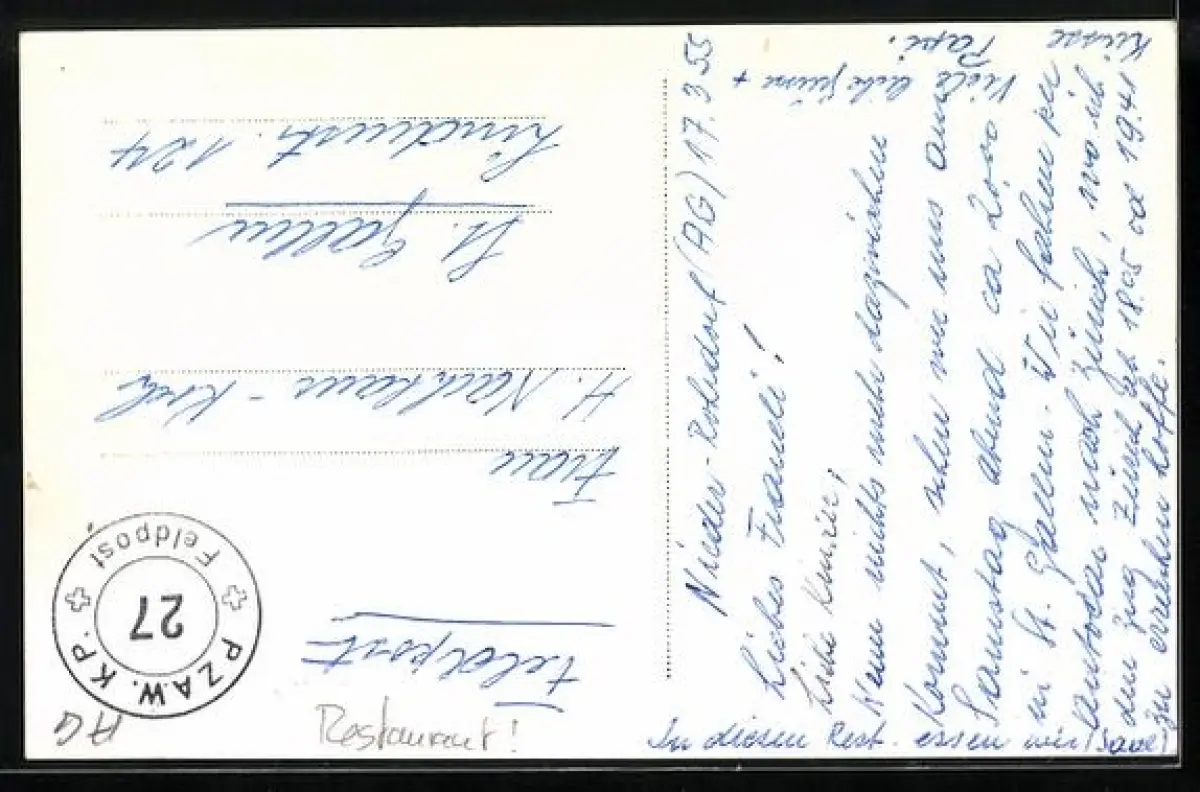 Nieder-Rohrdorf (AG) 17.3.55
Liebes Trudeli!
Liebe Kinder,
Wenn nichts mehr dazwischen
kommt, sehen wir uns am
Samstag abend ca 20.00
in St. Gallen. Wir fahren per
Autocar nach Zürich, wo ich
den Zug Zürich ab 18.05 od 19.41
zu erreichen hoffe.
Viele liebe Grüsse +
Küsse Papi.
In diesem Rest. essen wir (Saal)
Feldpost
Frau
St. Gallen
Lindenstr. 124
P.Z.A.W.K.P.
27
Feldpost
Restaurant!
AG